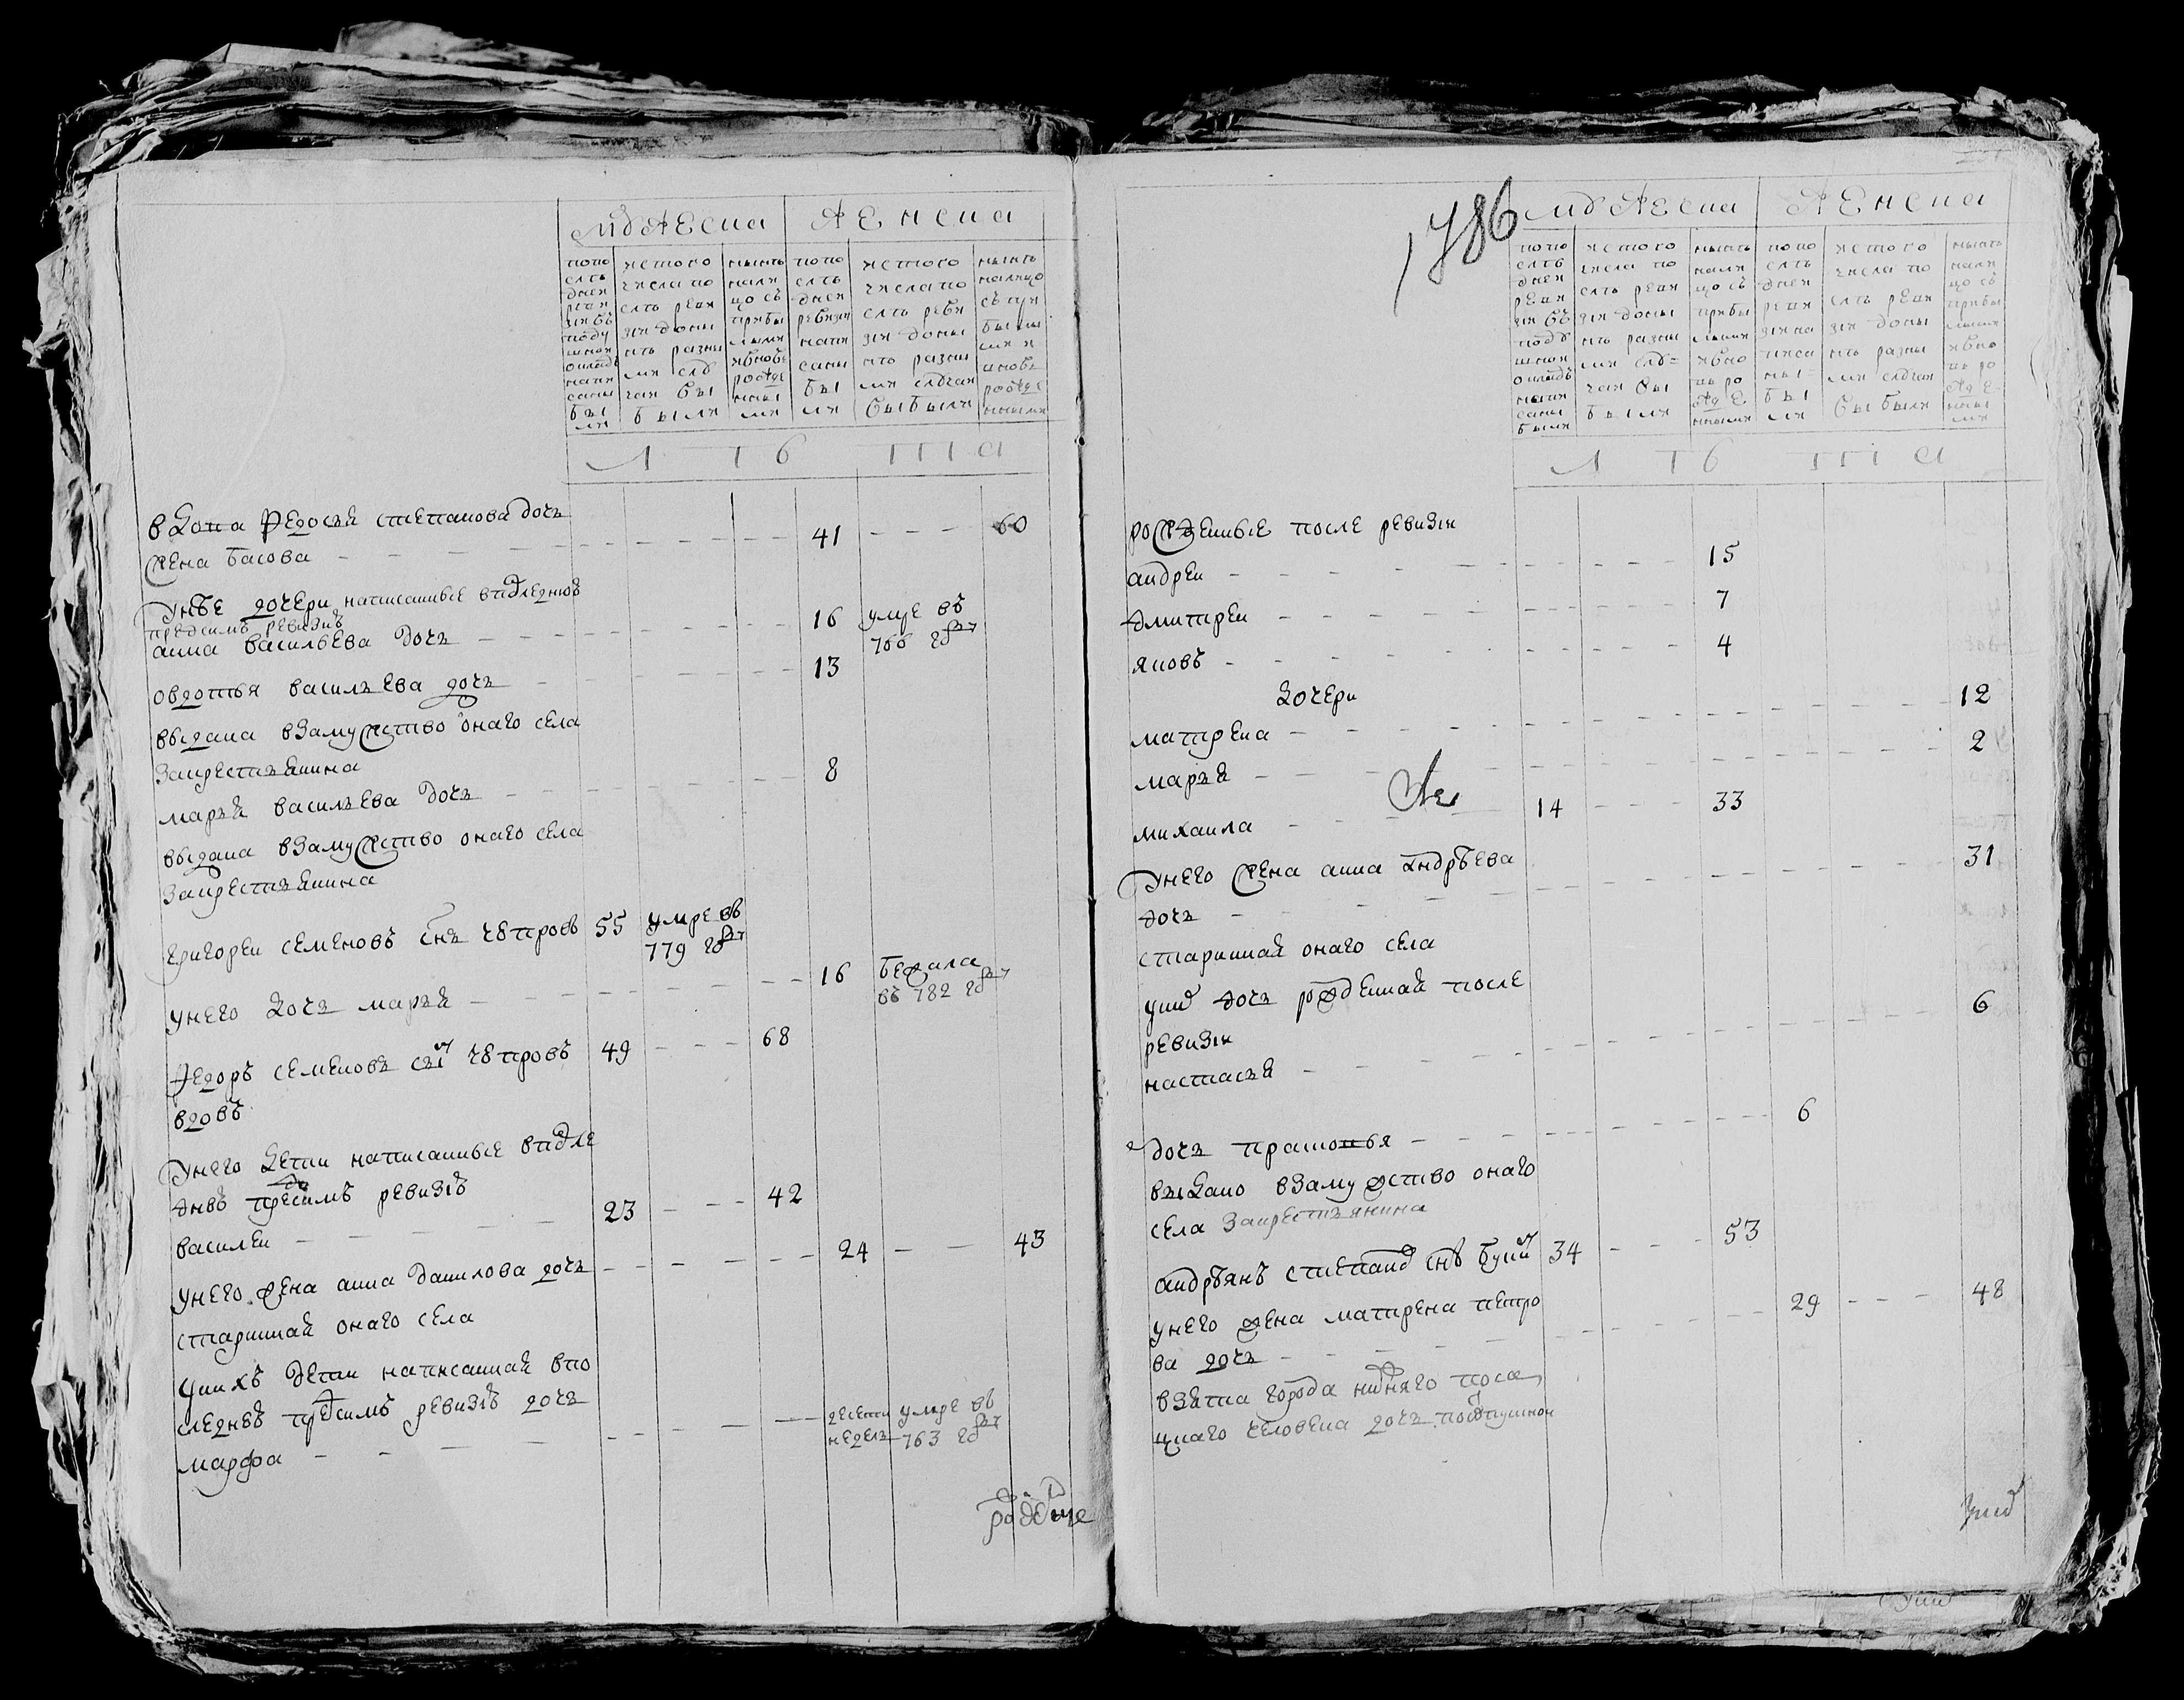 мужеска женска
по по
слѣ
дней
реви
зіи въ
поду
шной
окладъ
напи
саны
бы
ли
изъ того
числа по
слѣ реви
зіи домы
ктъ разны
ми слу
чаи вы
были
нынѣ
нали
цо съ
прибы
лыми
и вновь
рожде
ными
по по
слѣ
дней
ревизіи
напи
саны
бы
ли
изъ того
числа по
слѣ реви
зіи домы
кто разны
ми случаи
вы были
нынѣ
налицо
съ при
былы
ми и
вновь
рожде
ными
лѣта
вдова Федосья степанова дочь
жена басова 41 60
унѣе дочери написанные впслѣдню
предсимъ ревизіи
анна васильева дочь 16 умре въ
766 году
овдотья васильева дочь 13
выдана взамужство онаго села
закрестьянина
марья васильева дочь 8
выдана взамужство онаго села
закрестьянина
григореи семеновъ снъ чюпровъ 55 умре въ
779 году
унего дочь марья 16 бежала
въ 782 году
Федоръ семеновъ снъ чюпровъ 49 68
вдовъ
унего дети написанные впосле
днѣ предсимъ ревизіи
василеи 23 42
унего жена анна данилова дочь 24 43
старинная онаго села
унихъ дети написанная впо
следнѣ предсимъ ревизіи дочь
марфа десети
недель умре въ
763 году
рожденные
1786
мужеска женска
по по
слѣ
дней
реви
зіи въ
поду
шной
окладъ
напи
саны
были
изъ того
числа по
слѣ реви
зіи домы
ктъ разны
ми слу=
чаи вы
были
нынѣ
нали
цо съ
прибы
лыми
и вно
вь ро
жде
ными
по по
слѣ
дней
реви
зіи на
писа
ны
бы
ли
изъ того
числа по
слѣ реви
зіи домы
ктъ разны
ми случаи
вы были
нынѣ
нали
цо съ
прибы
лыми
и вно
вь ро
жде
ны
ми
лѣта
рожденные после ревизіи
андреи 15
дмитреи 7
яковъ 4
дочери
матрена 12
марья 2
михаила 14 33
унего жена анна андрѣева
дочь 31
старинная онаго села
унихъ дочь рожденная после
ревизіи
настасья 6
дочь прасковья 6
выдано взамужство онаго
села закрестьянина
андрѣянъ степанъ снъ 34 53
унего жена матрена петро
ва дочь 29 48
взята города нижняго поса
цкаго человека дочь
унихъ